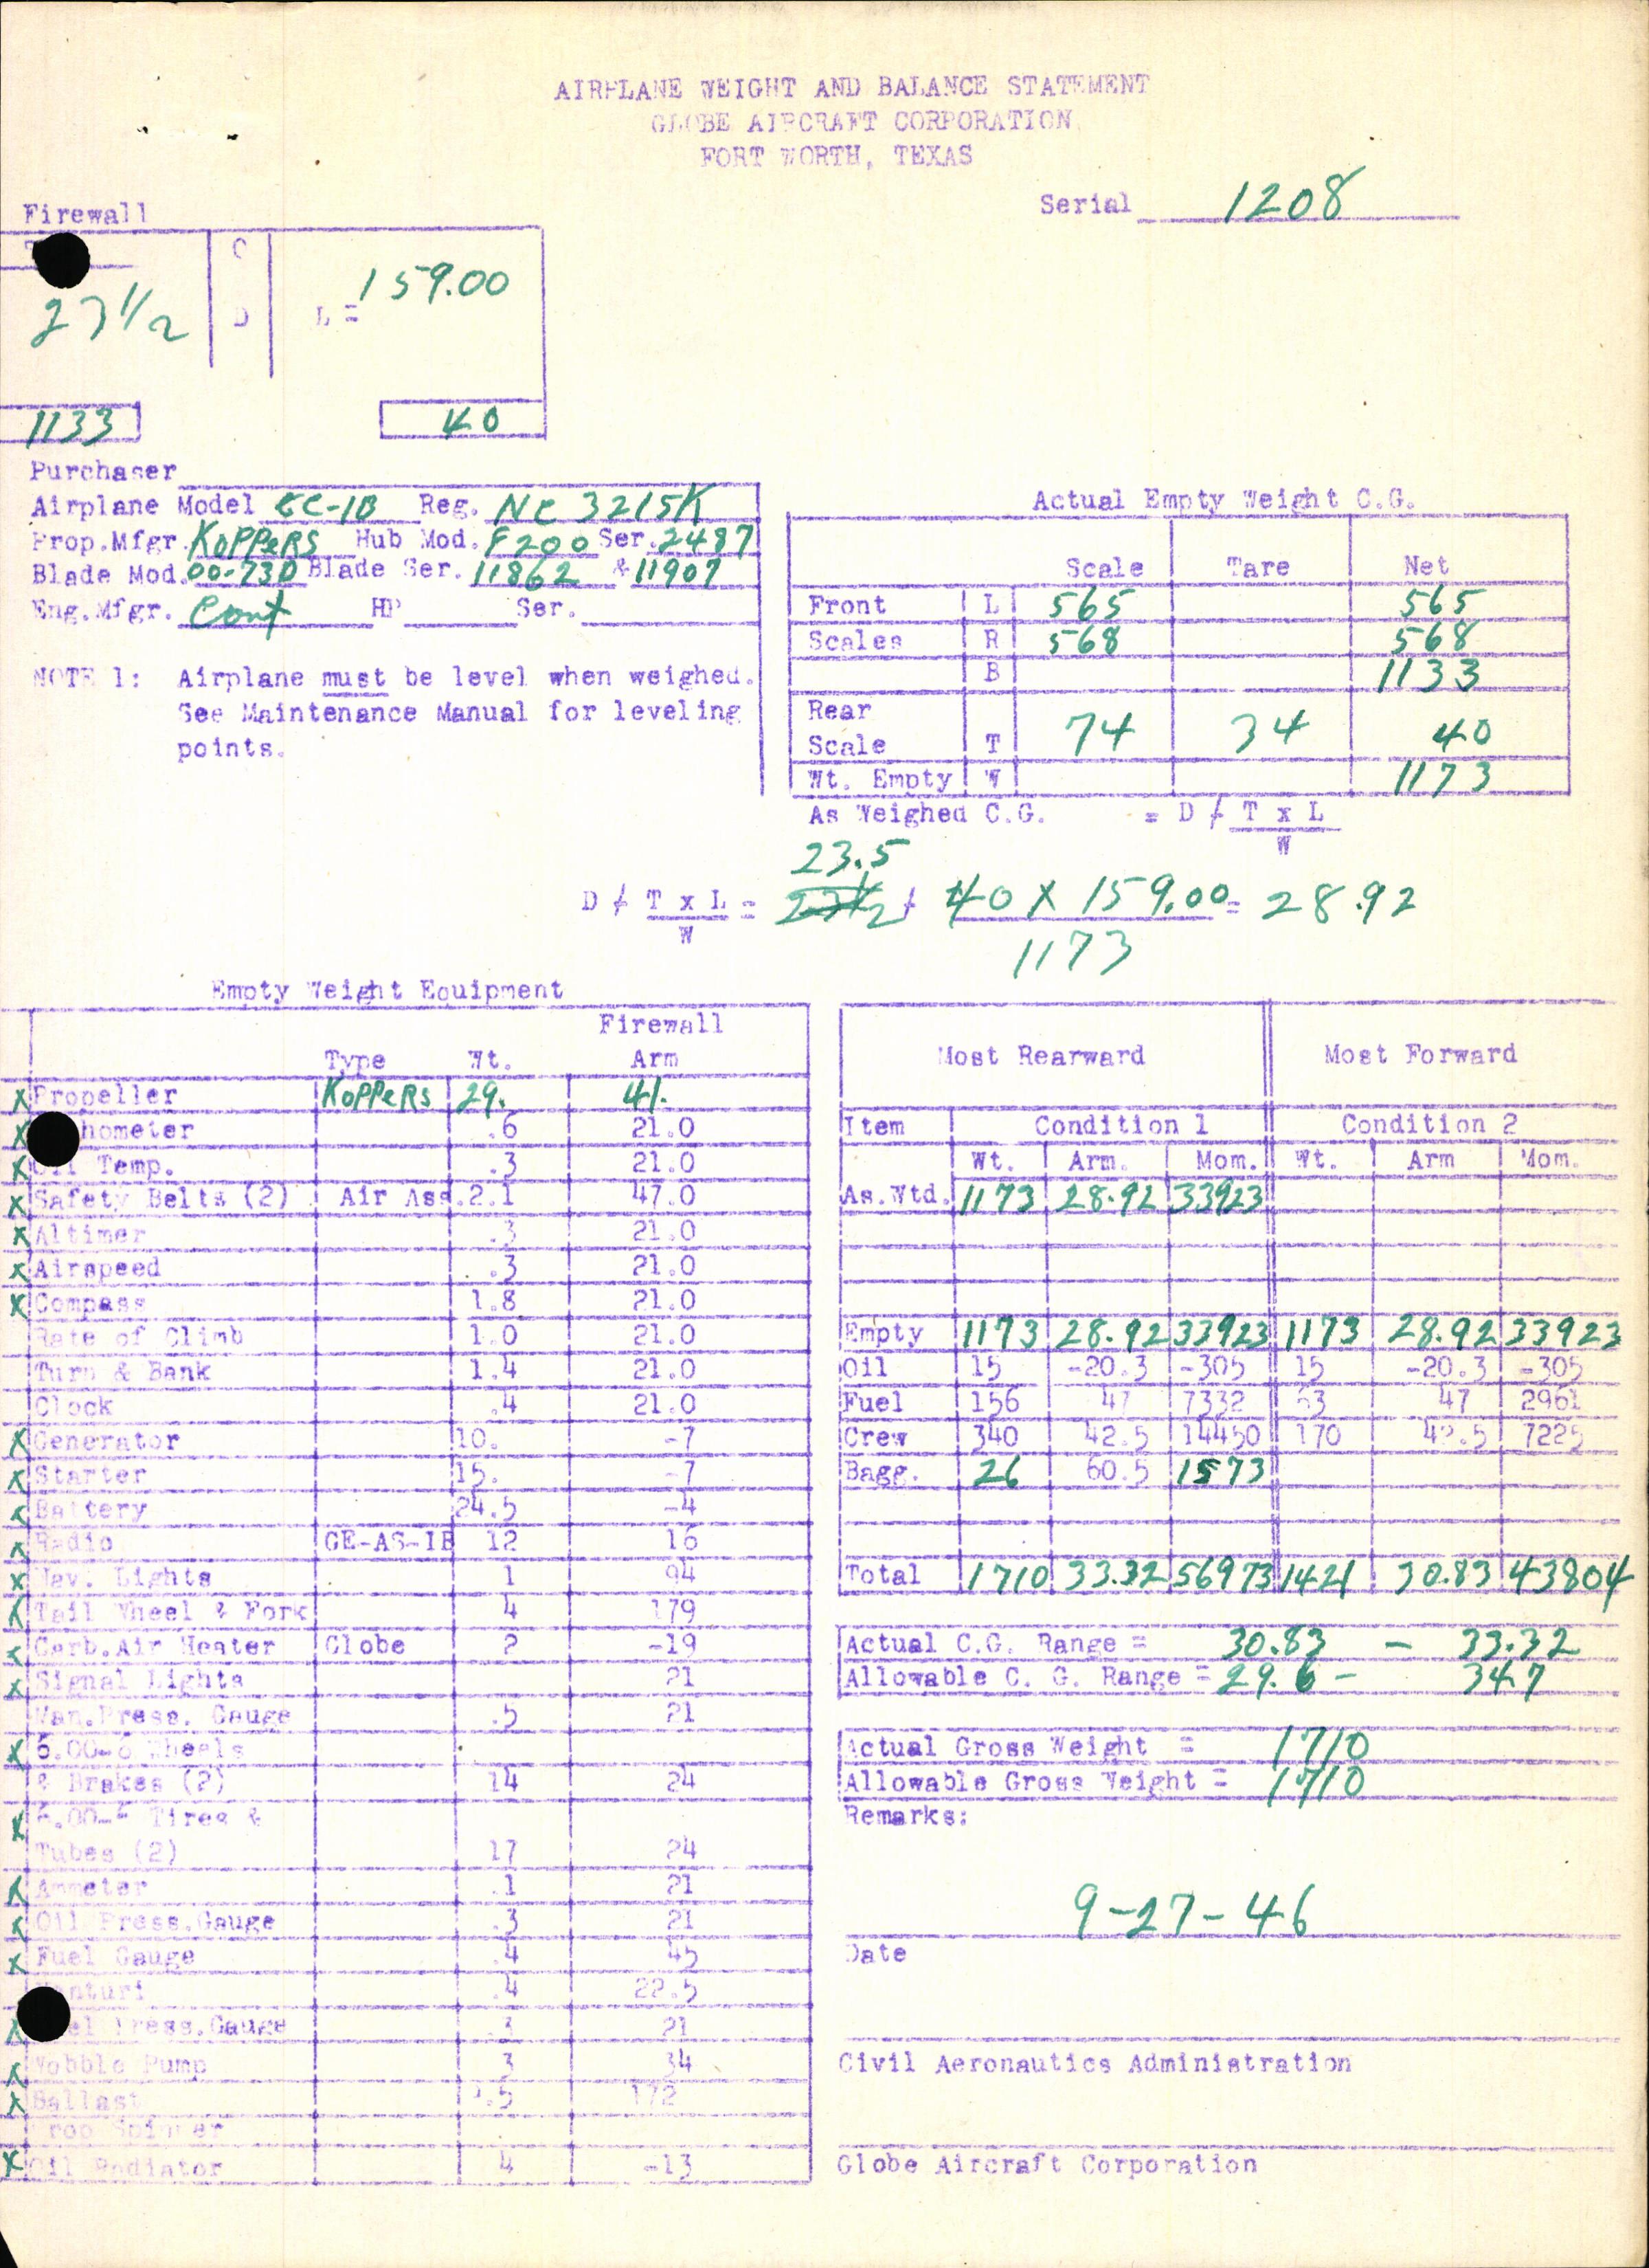 AIRPLANE WEIGHT AND BALANCE STATEMENT
GLOBE AIRCRAFT CORPORATION
FORT WORTH, TEXAS
Serial 1208
Firewall
C
D
L = 159.00
1133
40
Purchaser
Airplane Model GC-1B Reg. NC 3215K
Prop.Mfgr. KOPPERS Hub Mod. F200 Ser. 2487
Blade Mod. 00-73D Blade Ser. 11862 & 11907
Eng.Mfgr. Cont HP Ser.
NOTE 1: Airplane must be level when weighed.
See Maintenance Manual for leveling
points.
Actual Empty Weight C.G.
Scale Tare Net
Front L 565 565
Scales R 568 568
B 1133
Rear
Scale T 74 34 40
Wt. Empty W 1173
As Weighed C.G. = D + T x L
W
23.5
D + T x L = + 40 X 159.00 = 28.92
W 1173
Empty Weight Equipment
Firewall
Type Wt. Arm
X Propeller KOPPERS 29. 41.
X hometer .6 21.0
X Oil Temp. .3 21.0
X Safety Belts (2) Air Ass. 2.1 47.0
X Altimer .3 21.0
X Airspeed .3 21.0
X Compass 1.8 21.0
Rate of Climb 1.0 21.0
Turn & Bank 1.4 21.0
Clock .4 21.0
X Generator 10. -7
X Starter 15. -7
X Battery 24.5 -4
X Radio GE-AS-1B 12 16
X Nav. Lights 1 94
X Tail Wheel & Fork 4 179
X Carb.Air Heater Globe 2 -19
X Signal Lights 21
Man.Press. Gauge .5 21
X 6.00-6 Wheels
& Brakes (2) 14 24
X 6.00-6 Tires &
Tubes (2) 17 24
X Ammeter .1 21
X Oil Press.Gauge .3 21
X Fuel Gauge .4 45
Venturi .4 22.5
X el Press.Gauge .3 21
X Wobble Pump 3 34
X Ballast 172
Prop Spinner
X Oil Radiator 4 -13
Most Rearward Most Forward
Item Condition 1 Condition 2
Wt. Arm. Mom. Wt. Arm Mom.
As.Wtd. 1173 28.92 33923
Empty 1173 28.92 33923 1173 28.92 33923
Oil 15 -20.3 -305 15 -20.3 -305
Fuel 156 47 7332 63 47 2961
Crew 340 42.5 14450 170 42.5 7225
Bagg. 26 60.5 1573
Total 1710 33.32 56973 1421 30.83 43804
Actual C.G. Range = 30.83 - 33.32
Allowable C. G. Range = 29.6 - 34.7
Actual Gross Weight = 1710
Allowable Gross Weight = 1710
Remarks:
9-27-46
Date
Civil Aeronautics Administration
Globe Aircraft Corporation